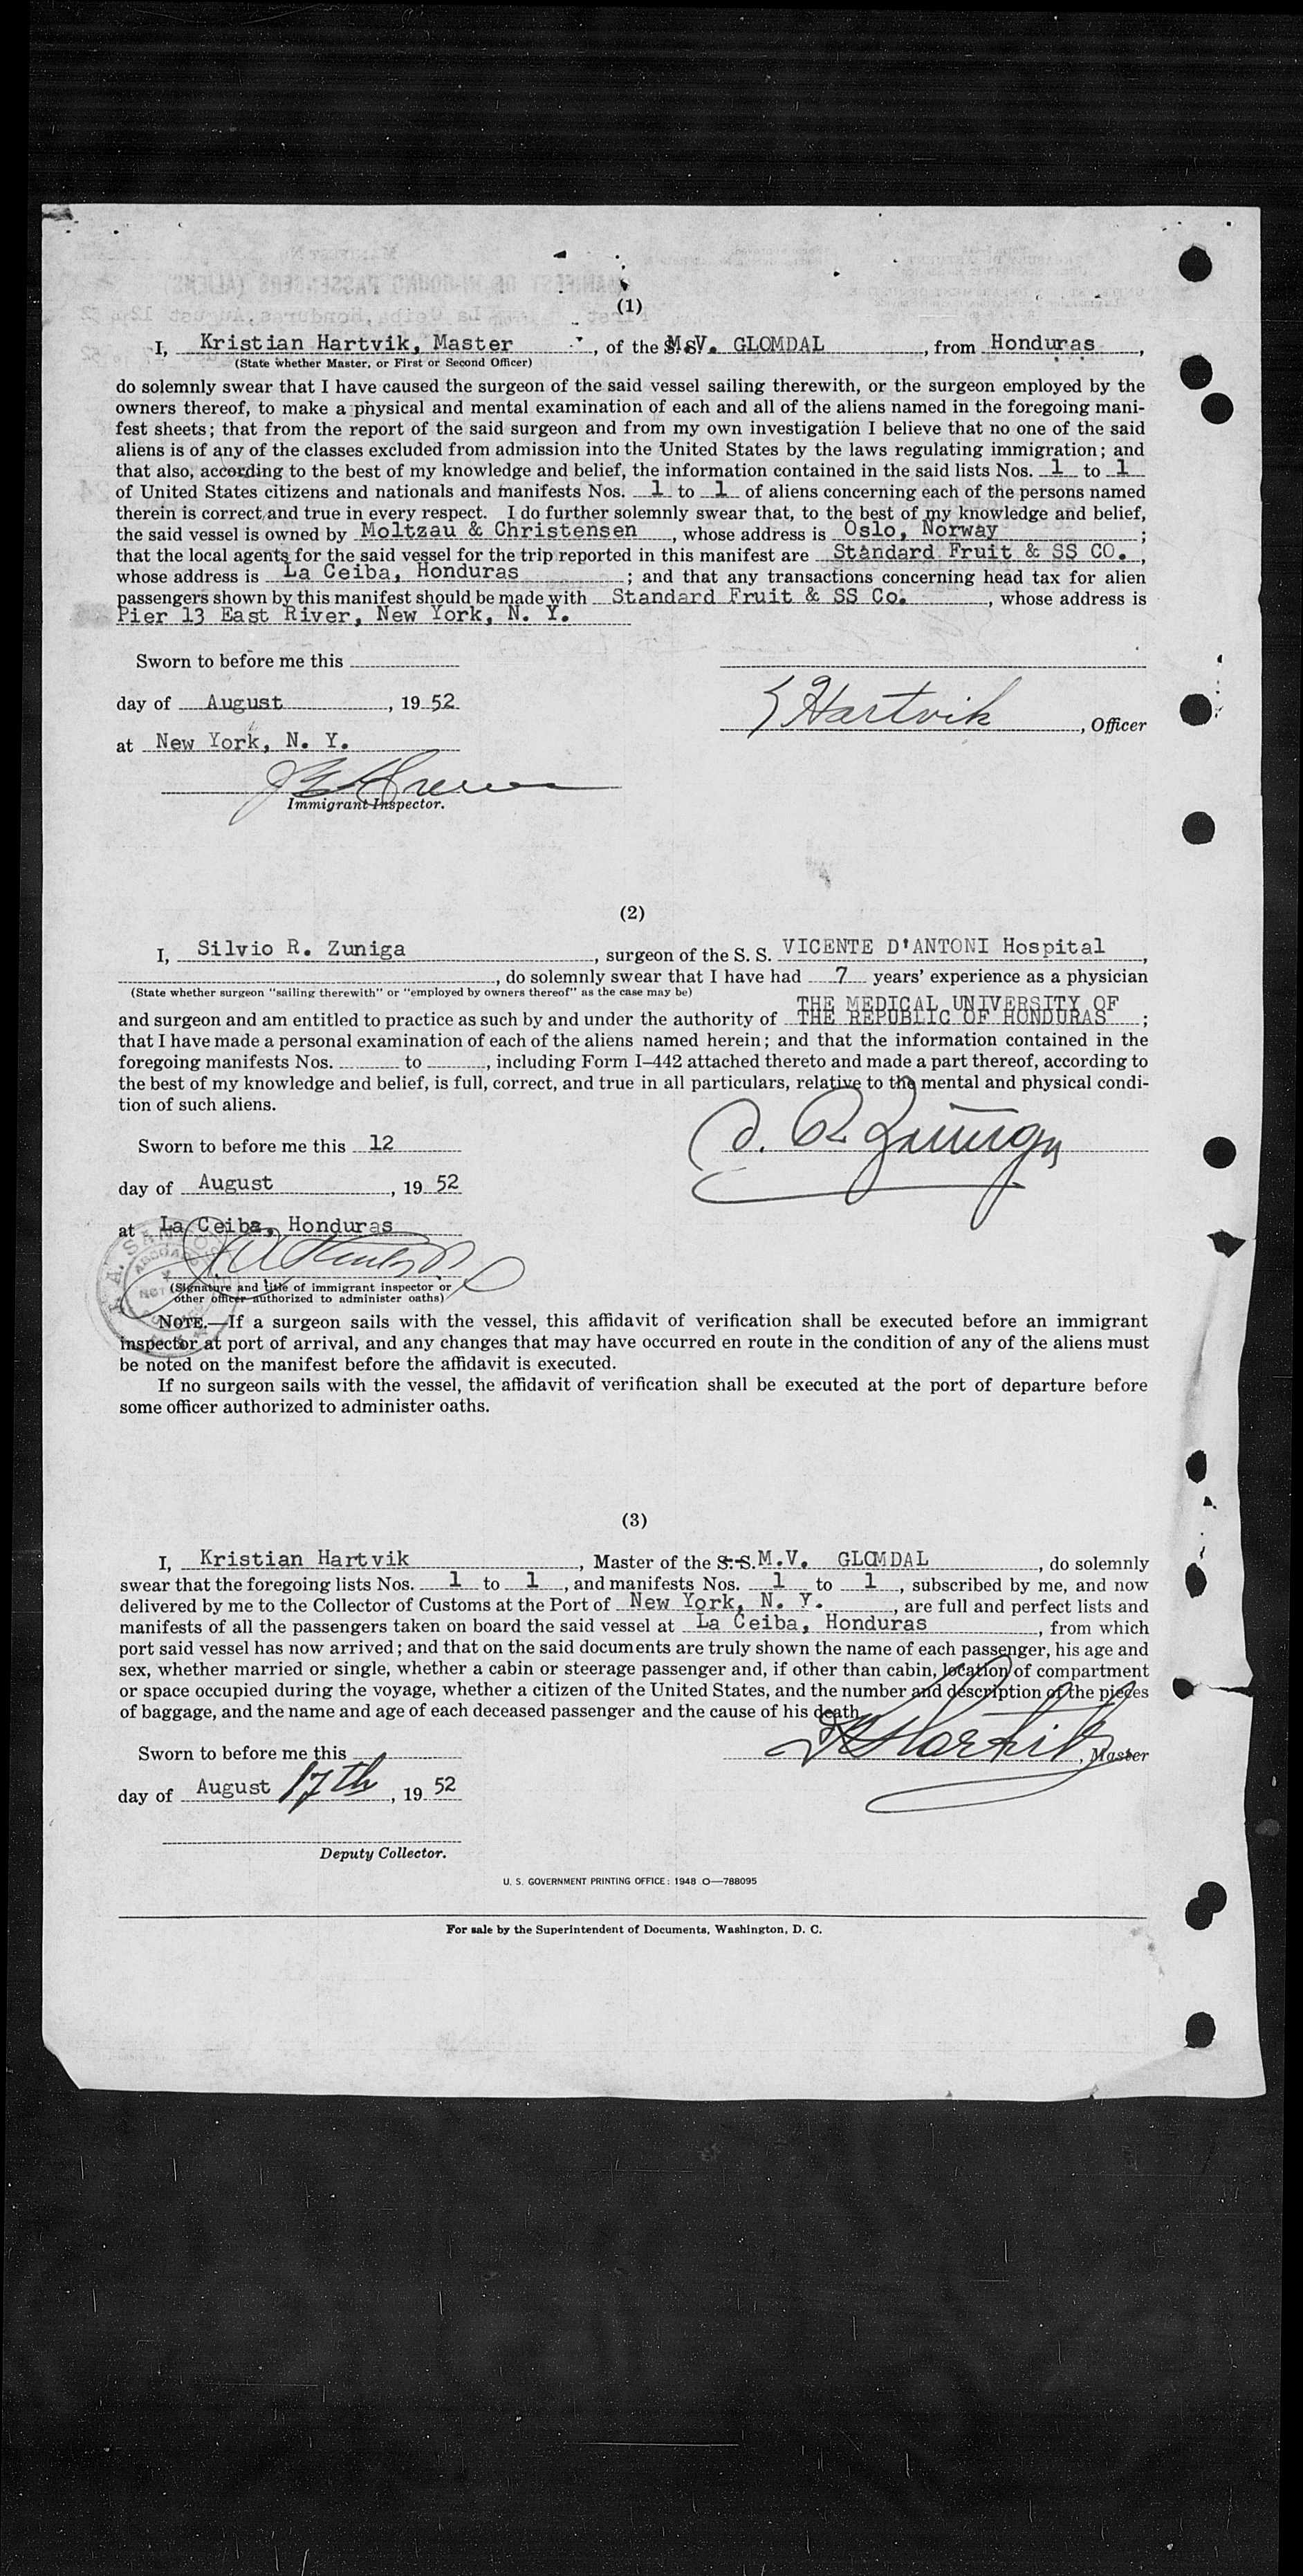 (1)
I, Kristian Hartvik, Master, of the M.V. GLOMDAL, from Honduras,
(State whether Master, or First or Second Officer)
do solemnly swear that I have caused the surgeon of the said vessel sailing therewith, or the surgeon employed by the
owners thereof, to make a physical and mental examination of each and all of the aliens named in the foregoing mani-
fest sheets; that from the report of the said surgeon and from my own investigation I believe that no one of the said
aliens is of any of the classes excluded from admission into the United States by the laws regulating immigration; and
that also, according to the best of my knowledge and belief, the information contained in the said lists Nos. 1 to 1
of United States citizens and nationals and manifests Nos. 1 to 1 of aliens concerning each of the persons named
therein is correct and true in every respect. I do further solemnly swear that, to the best of my knowledge and belief,
the said vessel is owned by Moltzau & Christensen, whose address is Oslo, Norway;
that the local agents for the said vessel for the trip reported in this manifest are Standard Fruit & SS CO.,
whose address is La Ceiba, Honduras; and that any transactions concerning head tax for alien
passengers shown by this manifest should be made with Standard Fruit & SS Co., whose address is
Pier 13 East River, New York, N. Y.
Sworn to before me this
day of August, 19 52
Hartvik, Officer
at New York, N. Y.
Immigrant Inspector.
(2)
I, Silvio R. Zuniga, surgeon of the S. S. VICENTE D'ANTONI Hospital,
, do solemnly swear that I have had 7 years' experience as a physician
(State whether surgeon "sailing therewith" or "employed by owners thereof" as the case may be)
THE MEDICAL UNIVERSITY OF
and surgeon and am entitled to practice as such by and under the authority of THE REPUBLIC OF HONDURAS;
that I have made a personal examination of each of the aliens named herein; and that the information contained in the
foregoing manifests Nos. to , including Form I-442 attached thereto and made a part thereof, according to
the best of my knowledge and belief, is full, correct, and true in all particulars, relative to the mental and physical condi-
tion of such aliens.
Sworn to before me this 12
S. R. Zuniga
day of August, 19 52
at La Ceiba, Honduras
(Signature and title of immigrant inspector or
other officer authorized to administer oaths)
NOTE.—If a surgeon sails with the vessel, this affidavit of verification shall be executed before an immigrant
inspector at port of arrival, and any changes that may have occurred en route in the condition of any of the aliens must
be noted on the manifest before the affidavit is executed.
If no surgeon sails with the vessel, the affidavit of verification shall be executed at the port of departure before
some officer authorized to administer oaths.
(3)
I, Kristian Hartvik, Master of the S. S. M.V. GLOMDAL, do solemnly
swear that the foregoing lists Nos. 1 to 1, and manifests Nos. 1 to 1, subscribed by me, and now
delivered by me to the Collector of Customs at the Port of New York, N. Y., are full and perfect lists and
manifests of all the passengers taken on board the said vessel at La Ceiba, Honduras, from which
port said vessel has now arrived; and that on the said documents are truly shown the name of each passenger, his age and
sex, whether married or single, whether a cabin or steerage passenger and, if other than cabin, location of compartment
or space occupied during the voyage, whether a citizen of the United States, and the number and description of the pieces
of baggage, and the name and age of each deceased passenger and the cause of his death.
Sworn to before me this
Hartvik, Master
day of August 17th, 19 52
Deputy Collector.
U. S. GOVERNMENT PRINTING OFFICE: 1948 O—788095
For sale by the Superintendent of Documents, Washington, D. C.